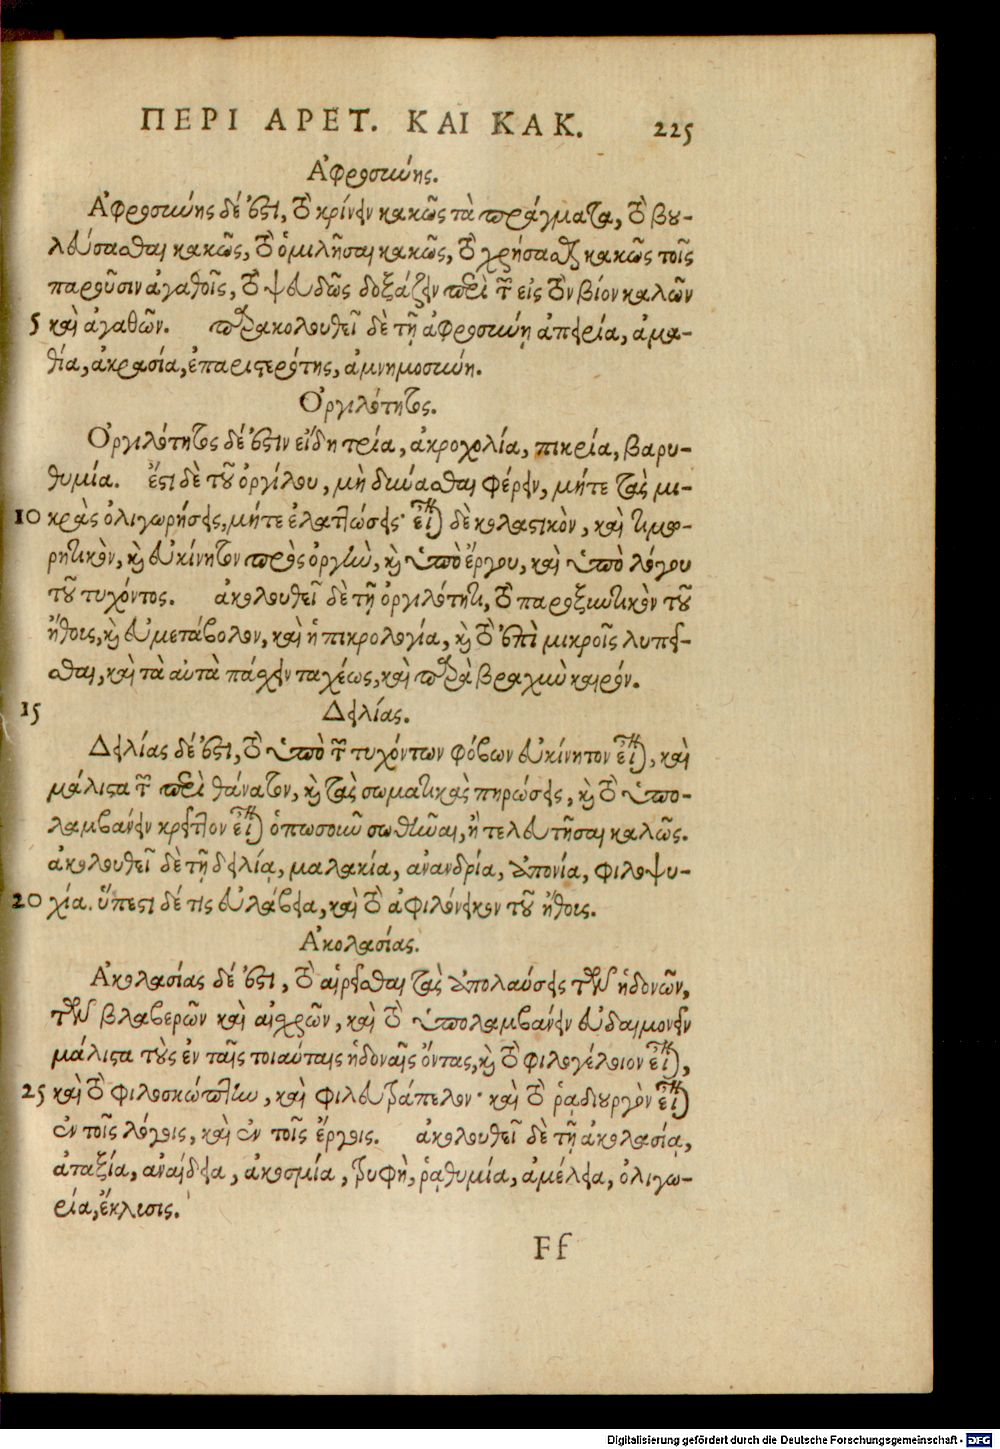 ΠΕΡΙ ΑΡΕΤ. ΚΑΙ ΚΑΚ. 225
Ἀφροσύνης.
Ἀφροσύνης δέ ἐστι, τὸ κρίνειν κακῶς τὰ πράγματα, τὸ βου-
λεύσασθαι κακῶς, τὸ ὁμιλῆσαι κακῶς, τὸ χρήσασθαι κακῶς τοῖς
παροῦσιν ἀγαθοῖς, τὸ ψευδῶς δοξάζειν περὶ τῶν εἰς τὸν βίον καλῶν
5 καὶ ἀγαθῶν. παρακολουθεῖ δὲ τῇ ἀφροσύνῃ ἀπειρία, ἀμα-
θία, ἀκρασία, ἐπαριστερότης, ἀμνημοσύνη.
Ὀργιλότητος.
Ὀργιλότητος δέ ἐστιν εἴδη τρία, ἀκροχολία, πικρία, βαρυ-
θυμία. ἔστι δὲ τοῦ ὀργίλου, μὴ δύνασθαι φέρειν, μήτε τὰς μι-
10 κρὰς ὀλιγωρήσεις, μήτε ἐλαττώσεις· εἶναι δὲ κολαστικὸν, καὶ τιμω-
ρητικὸν, καὶ εὐκίνητον πρὸς ὀργὴν, καὶ ὑπὸ ἔργου, καὶ ὑπὸ λόγου
τοῦ τυχόντος. ἀκολουθεῖ δὲ τῇ ὀργιλότητι, τὸ παροξυντικὸν τοῦ
ἤθους, καὶ εὐμετάβολον, καὶ ἡ πικρολογία, καὶ τὸ ἐπὶ μικροῖς λυπεῖ-
σθαι, καὶ τὰ αὐτὰ πάσχειν ταχέως, καὶ παρὰ βραχὺν καιρόν.
15 Δειλίας.
Δειλίας δέ ἐστι, τὸ ὑπὸ τῶν τυχόντων φόβων εὐκίνητον εἶναι, καὶ
μάλιστα τῶν περὶ θάνατον, καὶ τὰς σωματικὰς πηρώσεις, καὶ τὸ ὑπο-
λαμβάνειν κρεῖττον εἶναι ὁπωσοῦν σωθῆναι, ἢ τελευτῆσαι καλῶς.
ἀκολουθεῖ δὲ τῇ δειλίᾳ, μαλακία, ἀνανδρία, ἀπονία, φιλοψυ-
20 χία. ὕπεστι δέ τις εὐλάβεια, καὶ τὸ ἀφιλόνεικον τοῦ ἤθους.
Ἀκολασίας.
Ἀκολασίας δέ ἐστι, τὸ αἱρεῖσθαι τὰς ἀπολαύσεις τῶν ἡδονῶν,
τῶν βλαβερῶν καὶ αἰσχρῶν, καὶ τὸ ὑπολαμβάνειν εὐδαιμονεῖν
μάλιστα τοὺς ἐν ταῖς τοιαύταις ἡδοναῖς ὄντας, καὶ τὸ φιλογέλοιον εἶναι,
25 καὶ τὸ φιλοσκώπτην, καὶ φιλευτράπελον· καὶ τὸ ῥᾳδιουργὸν εἶναι
ἐν τοῖς λόγοις, καὶ ἐν τοῖς ἔργοις. ἀκολουθεῖ δὲ τῇ ἀκολασίᾳ,
ἀταξία, ἀναίδεια, ἀκοσμία, τρυφὴ, ῥᾳθυμία, ἀμέλεια, ὀλιγω-
ρία, ἔκλυσις.
Ff
Digitalisierung gefördert durch die Deutsche Forschungsgemeinschaft - DFG